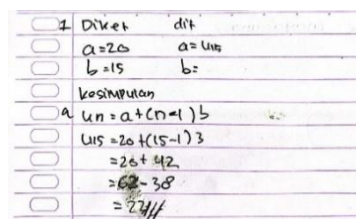 1 Diket dit
a=20 a= U15
b=15 b=
kesimpulan
a Un = a+(n-1)b
U15 = 20+(15-1)3
= 20+ 42
= 62-38
= 24